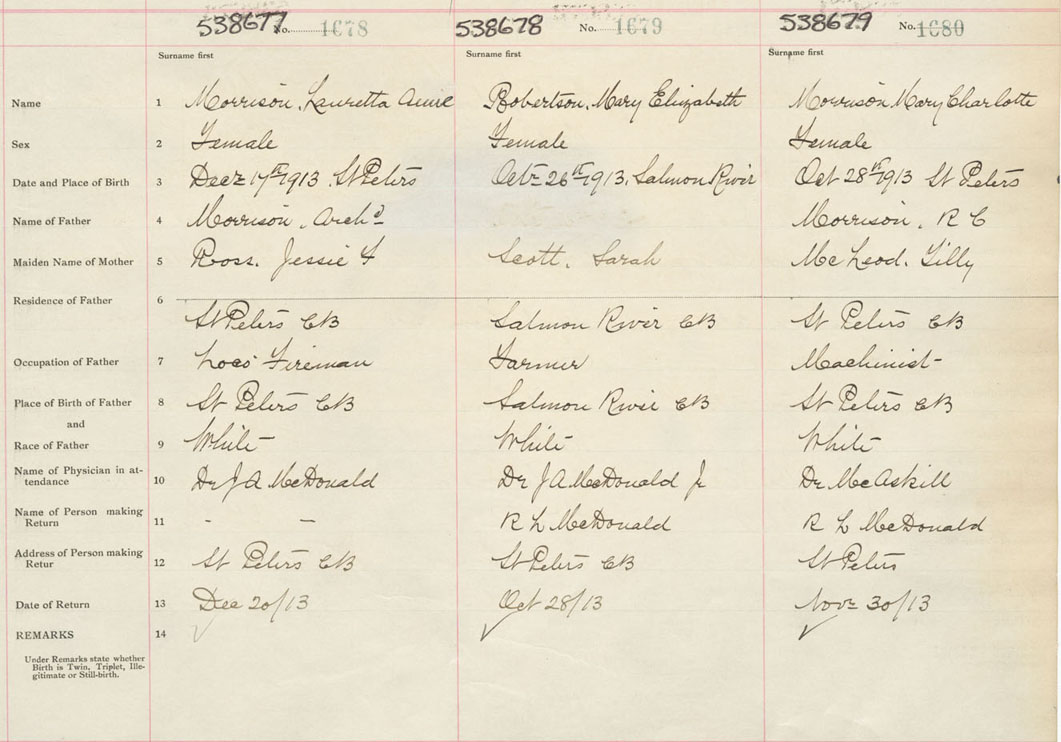 538677 No. 1678 538678 No. 1679 538679 No. 1680
Surname first Surname first Surname first
Name 1 Morrison, Lauretta Annie Robertson, Mary Elizabeth Morrison Mary Charlotte
Sex 2 Female Female Female
Date and Place of Birth 3 Decr 17th 1913, St Peters Octr 26th 1913, Salmon River Oct 28th 1913 St Peters
Name of Father 4 Morrison, Archd Morrison, R C
Maiden Name of Mother 5 Ross, Jessie F Scott, Sarah McLeod, Tilly
Residence of Father 6
St Peters CB Salmon River CB St Peters CB
Occupation of Father 7 Loco Fireman Farmer Machinist
Place of Birth of Father 8 St Peters CB Salmon River CB St Peters CB
and
Race of Father 9 White White White
Name of Physician in at-
tendance 10 Dr J A McDonald Dr J A McDonald Jr Dr McAskill
Name of Person making
Return 11 - - R L McDonald R L McDonald
Address of Person making
Retur 12 St Peters CB St Peters CB St Peters
Date of Return 13 Dec 20/13 Oct 28/13 Novr 30/13
REMARKS 14
Under Remarks state whether
Birth is Twin, Triplet, Ille-
gitimate or Still-birth.